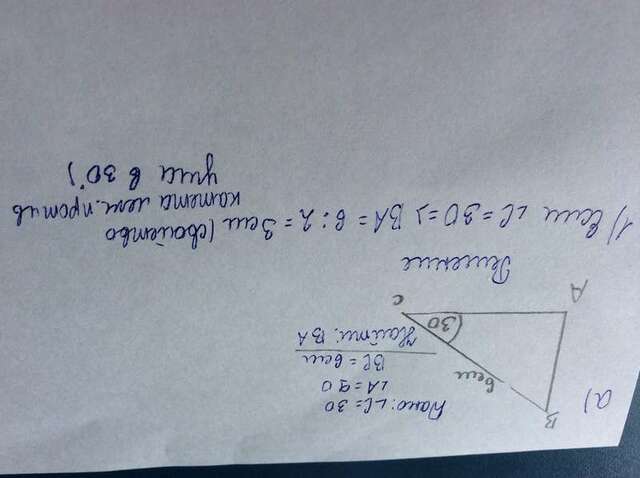 а)
B
6см
30
A
C
Дано: ∠C = 30
∠A = 90
BC = 6см
Найти: BA
Решение
1) Если ∠C = 30 => BA = 6 : 2 = 3см (свойство
катета леж. против
угла в 30°)